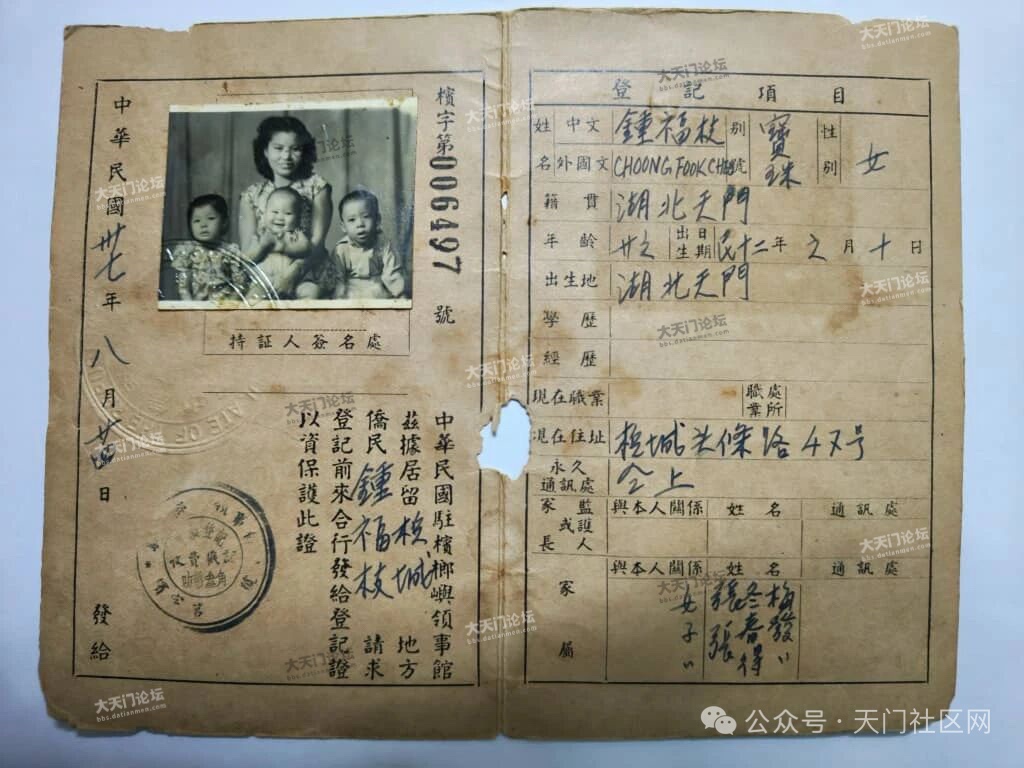 檳字第006497號
持証人簽名處
中華民國駐檳榔嶼領事館
茲據居留檳城地方
僑民鍾福枝請求
登記前來合行發給登記證
以資保護此證
中華民國卅七年八月廿四日發給
登記項目
姓名 中文 鍾福枝 別號 寶珠 性別 女
外國文 CHOONG FOOK
籍貫 湖北天門
年齡 出生日期 民十二年 月十日
出生地 湖北天門
學歷
經歷
現在職業 職業處所
現在住址 檳城頭條路47号
永久通訊處 仝上
家長或監護人 與本人關係 姓名 通訊處
家屬 與本人關係 姓名 通訊處
女 張冬梅
子 張春發
大天门论坛
bbs.datianmen.com
公众号·天门社区网